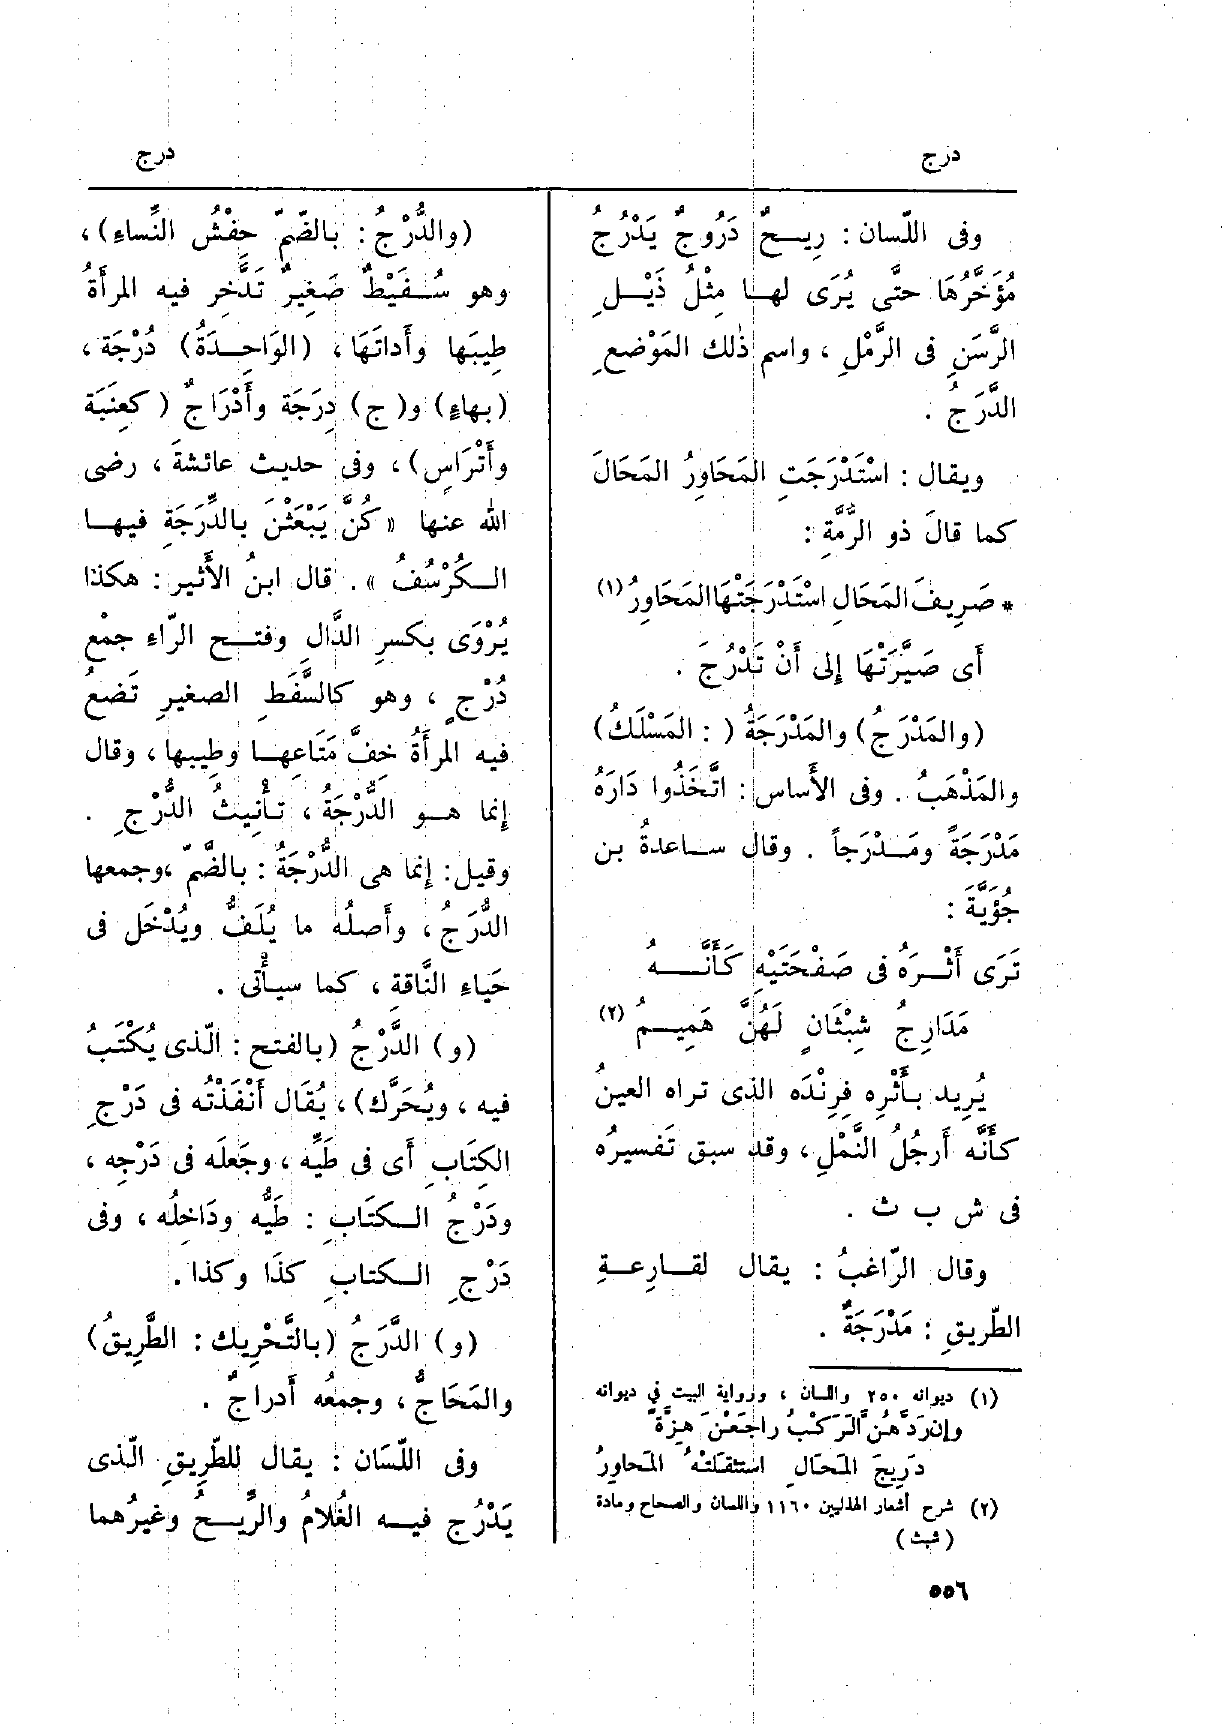 درج
درج
وفى اللّسان : رِيـحٌ دَرُوجٌ يَدْرُجُ
مُؤَخَّرُهَا حتَّى يُرَى لهـا مِثْلُ ذَيْـلِ
الرَّسَنِ فى الرَّمْلِ ، واسم ذٰلك المَوْضعِ
الدَّرَجُ .
ويقال : اسْتَدْرَجَتِ المَحَاوِرُ المَحَالَ
كما قالَ ذو الرُّمَّةِ :
* صَرِيفَ المَحَالِ اسْتَدْرَجَتْهَا المَحَاوِرُ (١)
أى صَيَّرَتْهَا إلى أنْ تَدْرُجَ .
(والمَدْرَجُ) والمَدْرَجَةُ ( : المَسْلَكُ)
والمَذْهَبُ . وفى الأَساس : اتَّخَذُوا دَارَهُ
مَدْرَجَةً ومَـدْرَجاً . وقال سـاعدةُ بن
جُؤَيَّةَ :
تَرَى أَثْـرَهُ فى صَفْحَتَيْهِ كَأَنَّــهُ
مَدَارِجُ شِبْثَانٍ لَهُنَّ هَمِيـمُ (٢)
يُرِيد بأَثْرِه فِرِنْدَه الذى تراه العينُ
كأَنَّه أَرجُلُ النَّمْلِ ، وقد سبق تَفسيرُه
فى ش ب ث .
وقال الرّاغبُ : يقال لقـارِعـةِ
الطّريقِ : مَدْرَجَةٌ .
(١) ديوانه ٢٥٠ واللسان ، ورواية البيت في ديوانه
وإن رَدَّهُنَّ الرَكْبُ راجَعْنَ هِزَّةً
دَرِيجَ المَحَالِ استثقلتْهُ المَحاوِرُ
(٢) شرح أشعار الهذليين ١١٦٠ واللسان والصحاح ومادة
(شبث)
٥٥٦
(والدُّرْجُ : بالضّمّ حِفْشُ النِّساءِ) ،
وهو سُـفَيْطٌ صَغِيرٌ تَدَّخِر فيه المرأَةُ
طِيبَها وأَداتَهَا ، (الوَاحِـدَةُ) دُرْجَة ،
(بهاءٍ) و(ج) دِرَجَة وأَدْرَاجٌ (كعِنَبَة
وأَتْرَاسٍ) ، وفى حديث عائشةَ ، رضى
الله عنها « كُنَّ يَبْعَثْنَ بالدِّرَجَةِ فيهـا
الـكُرْسُفُ » . قال ابنُ الأَثير : هكذا
يُرْوَى بكسرِ الدّالِ وفتـحِ الرّاءِ جمْع
دُرْجٍ ، وهو كالسَّفَطِ الصغيرِ تَضعُ
فيه المرأَةُ خفَّ مَتَاعِهـا وطِيبها ، وقال
إنما هـو الدُّرْجَةُ ، تـأْنِيثُ الدُّرْجِ .
وقيل : إنما هى الدُّرْجَةُ : بالضّمّ ، وجمعها
الدُّرَجُ ، وأَصلُه ما يُلَفُّ ويُدْخَل فى
حَيَاءِ النَّاقة ، كما سيأْتى .
(و) الدَّرْجُ (بالفتح : الّذى يُكْتَبُ
فيه ، ويُحَرَّك) ، يُقَال أَنْفَذْتُه فى دَرْجِ
الكِتَابِ أَى فى طَيِّه ، وجَعلَه فى دَرْجِه ،
ودَرْجُ الـكتَابِ : طَيُّه ودَاخِلُه ، وفى
دَرْجِ الـكتابِ كذَا وكذا .
(و) الدَّرَجُ (بالتَّحْرِيك : الطَّرِيقُ)
والمَحَاجُّ ، وجمعُه أَدراجٌ .
وفى اللّسَان : يقال للطَّرِيقِ الّذى
يَدْرُج فيـه الغُلامُ والرِّيـحُ وغيرُهما